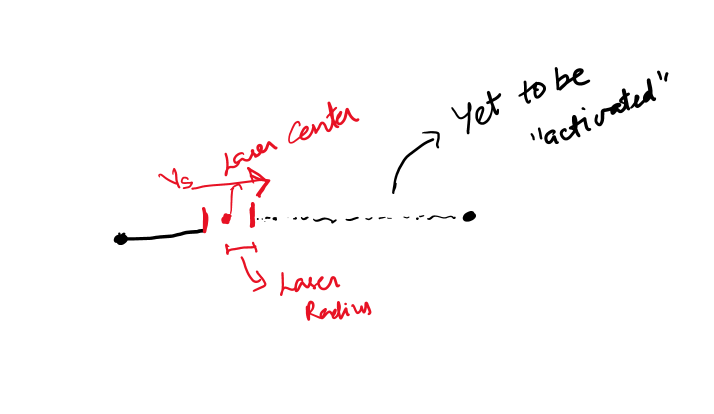 Yet to be
"activated"
Laser Center
Vs
Laser
Radius